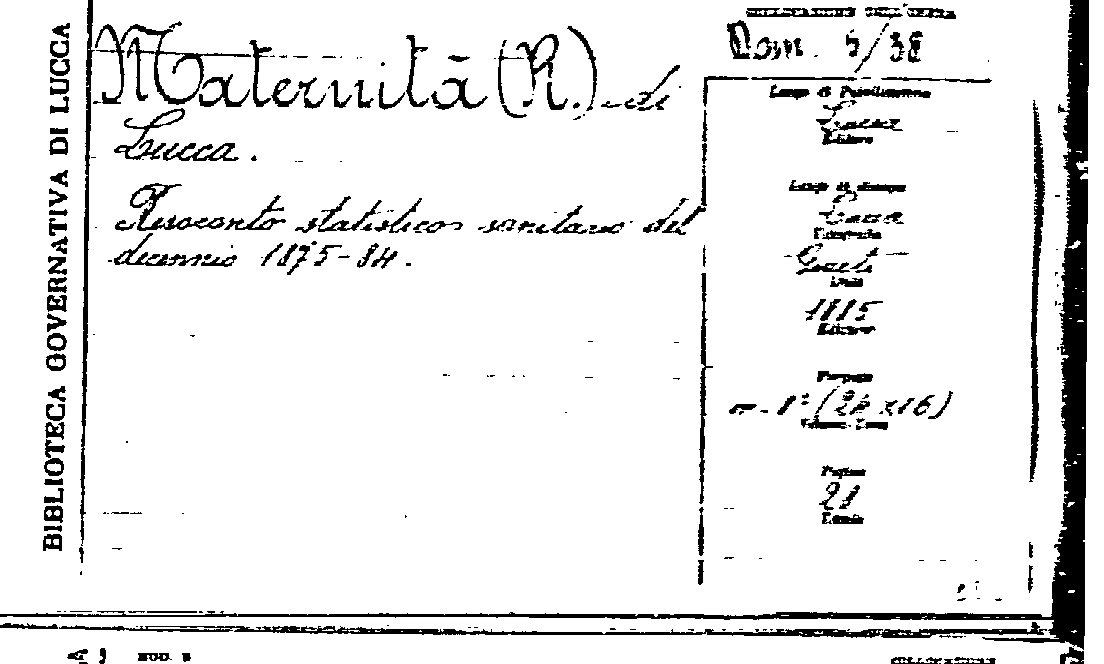 BIBLIOTECA GOVERNATIVA DI LUCCA
Maternità (R.) di
Lucca.
Resoconto statistico sanitario del
decennio 1875-84.
5/38
Luogo di Pubblicazione
Lucca
Editore
Luogo di stampa
Lucca
Tipografia
Data
1885
Edizione
Formato
(24x16)
Pagine
21
MOD. B
COLLOCAZIONE